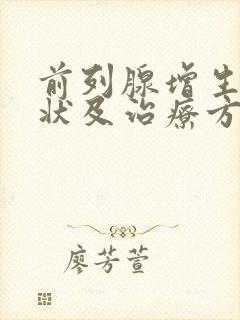 前列腺增生
状及治疗方
廖芳萱